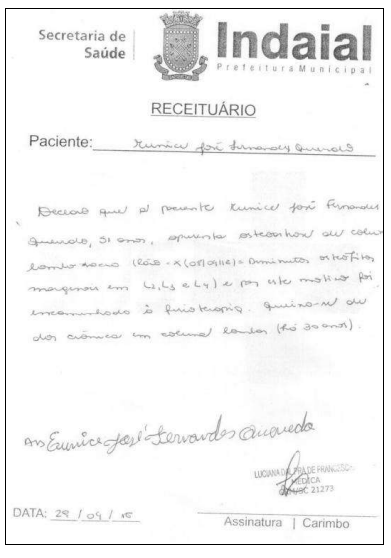 Secretaria de
Saúde
Indaial
Prefeitura Municipal
RECEITUÁRIO
Paciente: Eunice José Fernandes Quevedo
Declaro que a paciente Eunice José Fernandes
Quevedo, 51 anos, apresenta osteoartrose de coluna
lombo sacra (Raio-X = Diminutos osteófitos
marginais em L2, L3 e L4) e por este motivo foi
encaminhado à fisioterapia. Queixa-se de
dor crônica em coluna lombar (há 20 anos).
Ass Eunice José Fernandes Quevedo
LUCIANA DAL PRA DE FRANCESCHI
MÉDICA
21273
DATA: 29 / 04 / 15
Assinatura | Carimbo